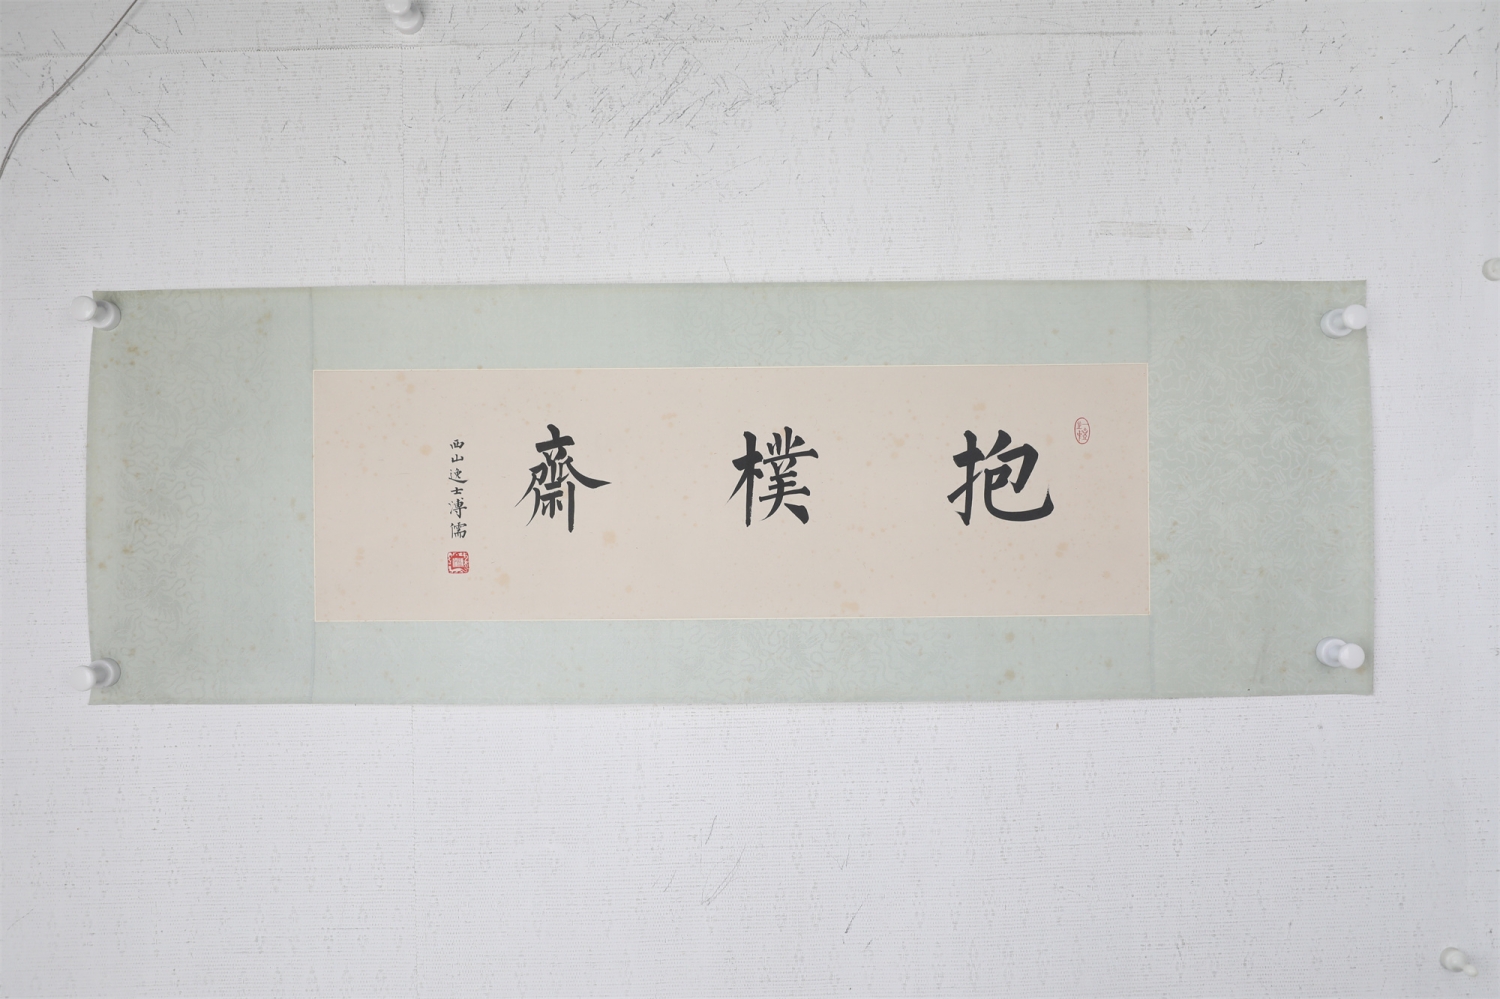 抱樸齋
西山逸士溥儒